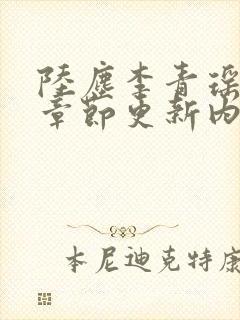 陆尘李青瑶
章节更新内
本尼迪克特康